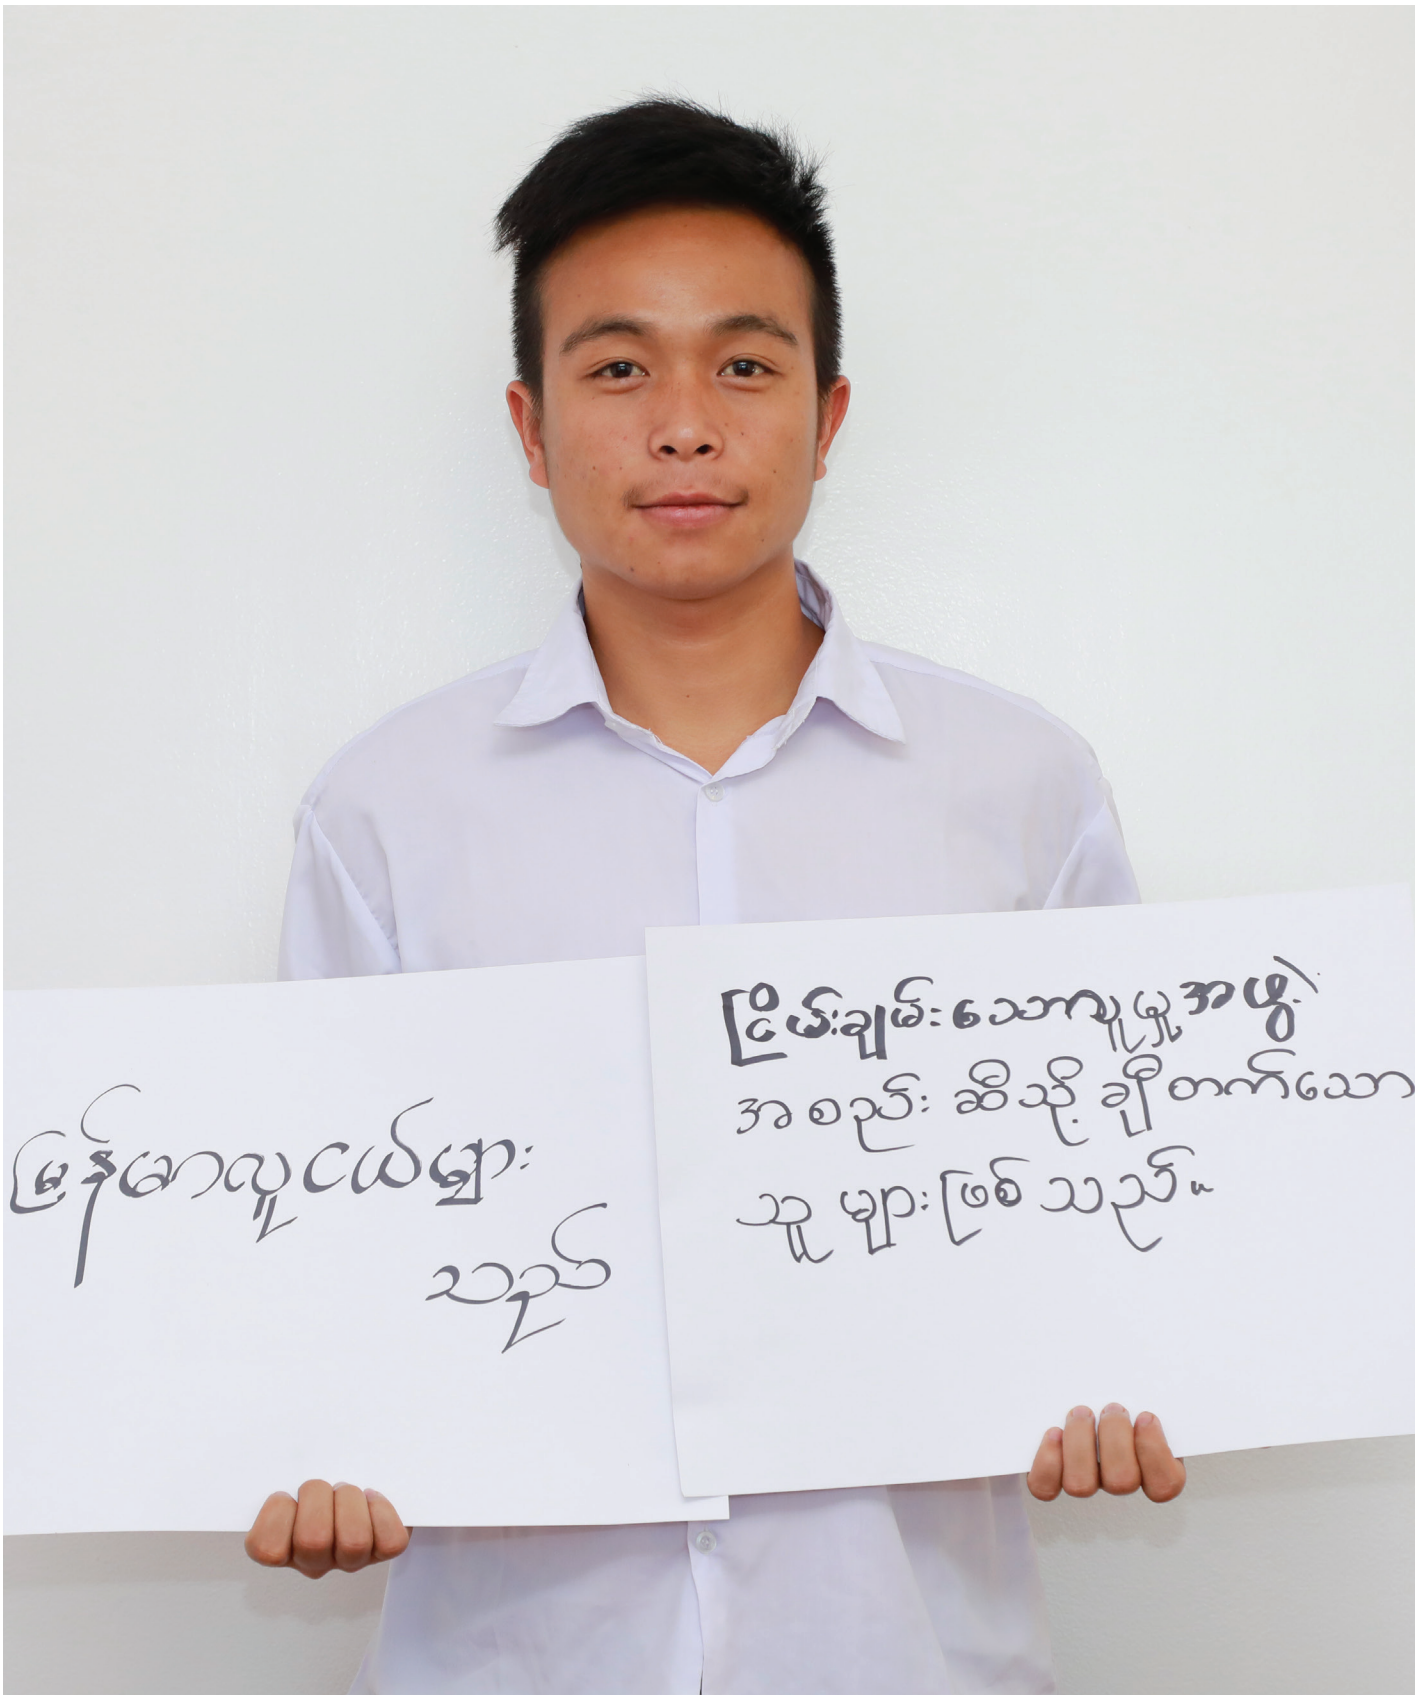 မြန်မာလူငယ်များ
သည်
ငြိမ်းချမ်းသောလူမှုအဖွဲ့
အစည်း ဆီသို့ ချီတက်သော
သူ များ ဖြစ် သည်။